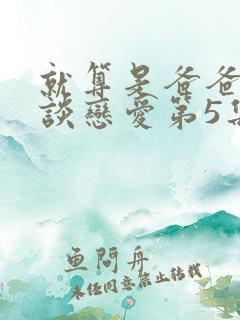 就算是爸爸
談戀愛第5集
鱼問舟
未经同意禁止转载